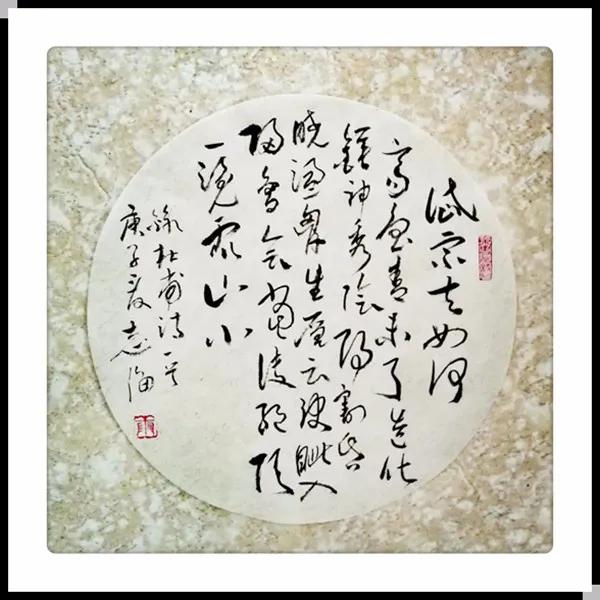 岱宗夫如何
齊魯青未了造化
鍾神秀陰陽割昏
曉盪胸生層云決眦入
歸鳥会當凌絕頂
一覽眾山小
錄杜甫詩一首
庚子夏志